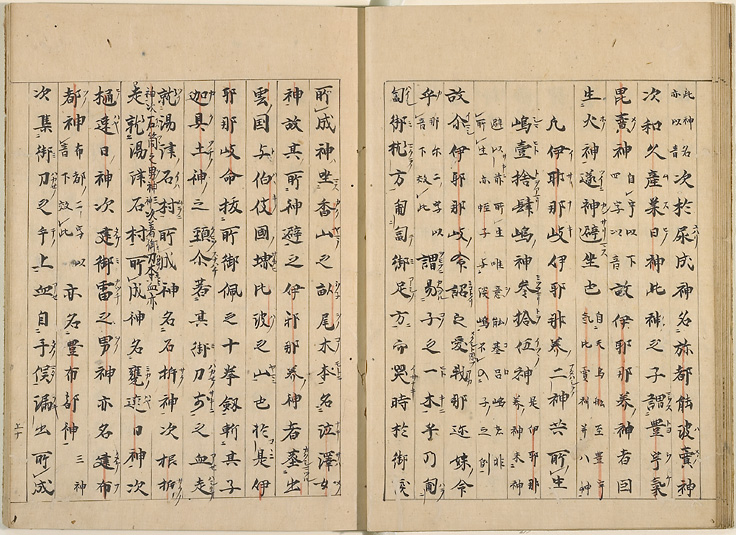 此神名亦以音次於尿成神名弥都能波賣神
次和久産巣日神此神之子謂豊宇氣
毘賣神自宇以下四字以音故伊耶那美神者因
生火神遂神避坐也自天鳥舩至豊宇氣比賣神并八神
凡伊耶那岐伊耶那美二神共所生
嶋壹拾肆嶋神參拾伍神是伊耶那美神未神
避以前所生唯意能碁呂嶋者非所生亦蛭子与淡嶋不入子之例
故尒伊耶那岐命詔之愛我那迩妹命
乎那尓二字以音下效此謂易子之一木乎乃匍
匐御枕方匍匐御足方而哭時於御涙
所成神坐香山之畝尾木本名泣澤女
神故其所神避之伊耶那美神者葬出
雲国与伯伎國堺比波之山也於是伊
耶那岐命抜所御佩之十拳劔斬其子
迦具土神之頚尒著其御刀前之血走
就湯津石村所成神名石析神次根析
神次石箇之男神次著御刀本血亦
走就湯津石村所成神名甕速日神次
樋速日神次建御雷之男神亦名建布
都神布都二字以音下效此亦名豊布都神三神
次集御刀之手上血自手俣漏出所成